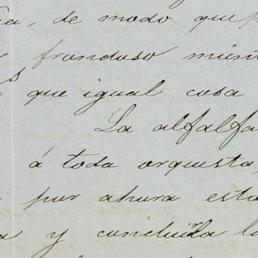 de modo que
frondoso
que igual cosa
La alfalfa
á toda orquesta
por ahora esta
y concluida la